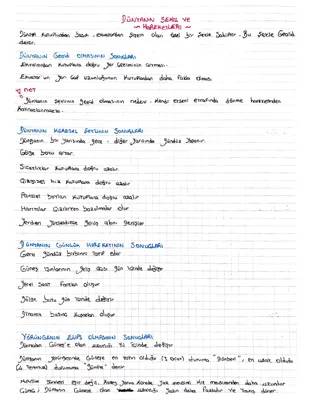 DÜNYANIN ŞEKLİ VE
~ HAREKETLERİ ~
Dünya kutuplardan basık, ekvatordan şişkin olan özel bir şekle sahiptir. Bu şekle Geoid
denir.
DÜNYANIN GEOİD OLMASININ SONUÇLARI
Ekvatordan kutuplara doğru yer çekiminin artması.
Ekvator'un yarı çap uzunluğunun kutuplardan daha fazla olması
NOT
Dünyanın şeklinin geoid olmasının nedeni, kendi ekseni etrafında dönme hareketinden
kaynaklanmaktadır.
DÜNYANIN KÜRESEL ŞEKLİNİN SONUÇLARI
Dünyanın bir yarısında gece, diğer yarısında gündüz yaşanır.
Gölge boyu artar.
Sıcaklıklar kutuplara doğru azalır
Çizgisel hız kutuplara doğru azalır
Paralel boyları kutuplara doğru azalır
Haritalar çizilirken bozulmalar olur
Yerden yükseldikçe görüş alanı genişler
DÜNYANIN GÜNLÜK HAREKETİNİN SONUÇLARI
Gece gündüz birbirini takip eder
Güneş ışınlarının geliş açısı gün içinde değişir
Yerel saat farkları oluşur
Gölge boyu gün içinde değişir
Dinamik basınç kuşakları oluşur
YÖRÜNGENİN ELİPS OLMASININ SONUÇLARI
Dünya'nın Güneş'e olan uzaklığı yıl içinde değişir
Dünyanın yörüngesinde Güneşe en yakın olduğu (3 Ocak) duruma "Günberi", en uzak olduğu
(4 Temmuz) durumuna "Günöte" denir